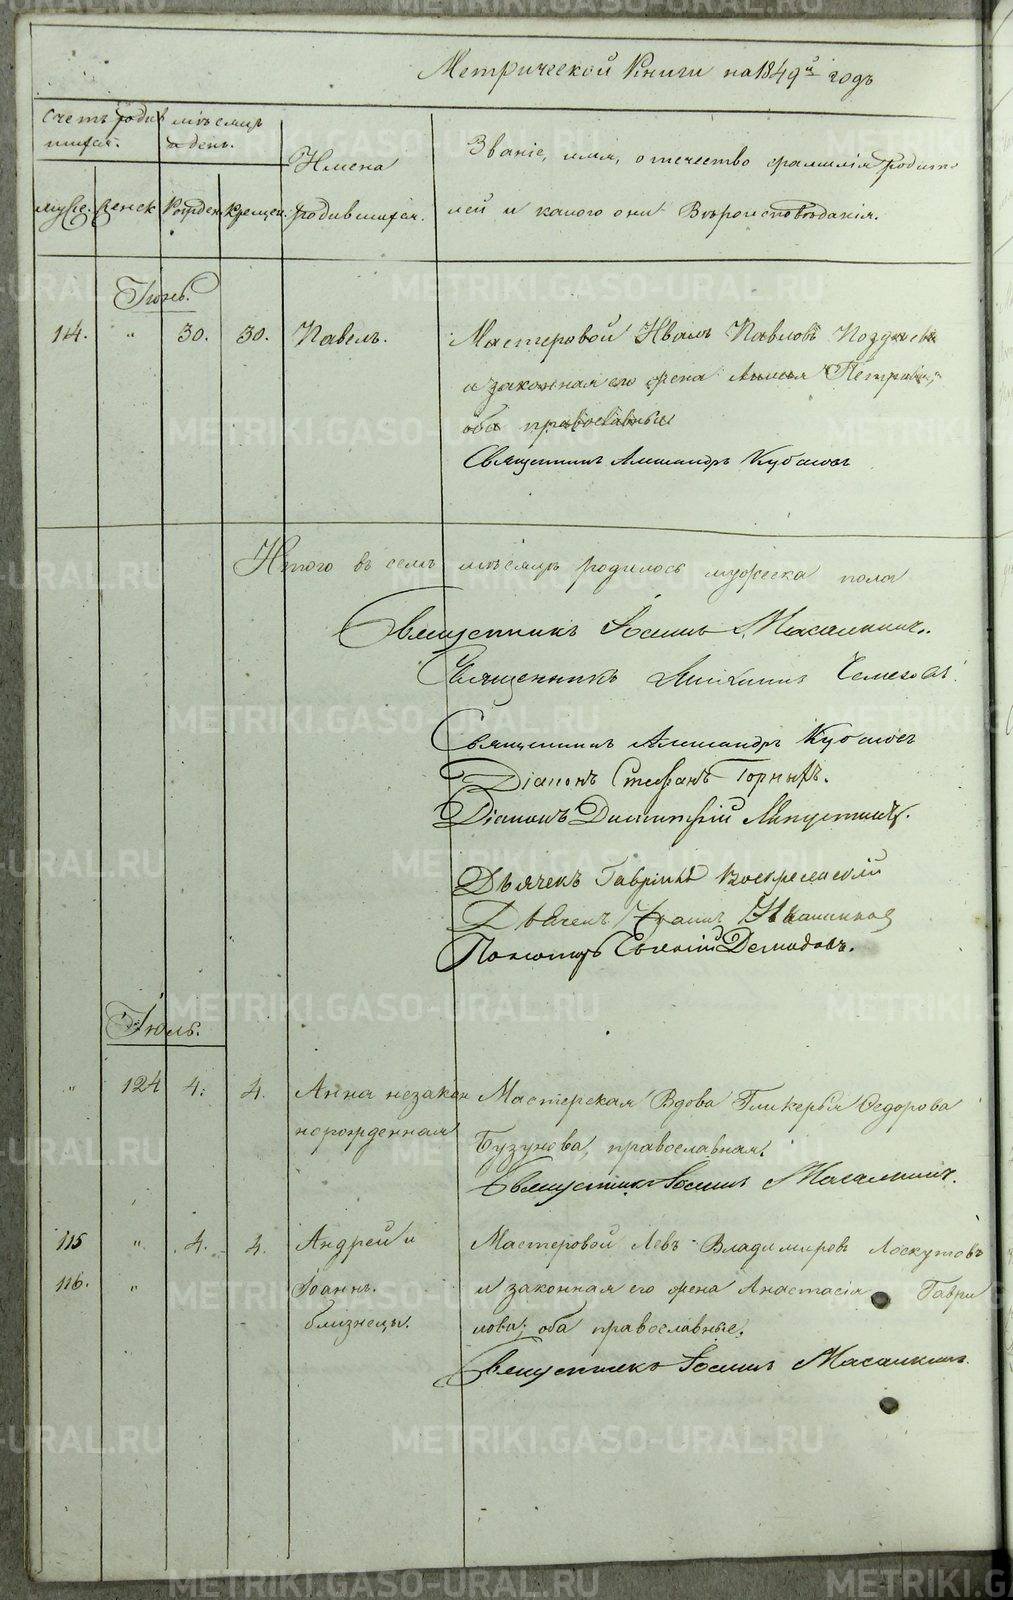 Метрической Книги на 1849й годъ
Счетъ родив
шихся.
мѣсяцъ
и день.
Имена
родившихся.
Званіе, имя, отчество фамилія родите
лей и какого они Вѣроисповѣданія.
муже. женск рожден. крещен.
Іюнь.
114. " 30. 30. Павелъ. Мастеровой Иванъ Павловъ
и законная его жена Петрова,
оба православные
Священникъ Александръ
Итого въ семъ мѣсяцѣ родилось мужеска пола
Священникъ Іосифъ
Священникъ
Священникъ Александръ
Діаконъ Стефанъ Горныхъ.
Діаконъ Димитрій
Дьячекъ Гавріилъ Воскресенскій
Дьячекъ
Пономарь Евгеній Демидовъ.
Іюль.
" 124 4. 4. Анна незакон Мастерская Вдова Гликерья Ѳедорова
норожденная Бузунова, православная.
Священникъ Іосифъ
115 " 4. 4. Андрей и Мастеровой Левъ Владимировъ Лоскутовъ
116. " Іоаннъ. и законная его жена Анастасія Гаври
близнецы. лова; оба православные.
Священникъ Іосифъ
METRIKI.GASO-URAL.RU